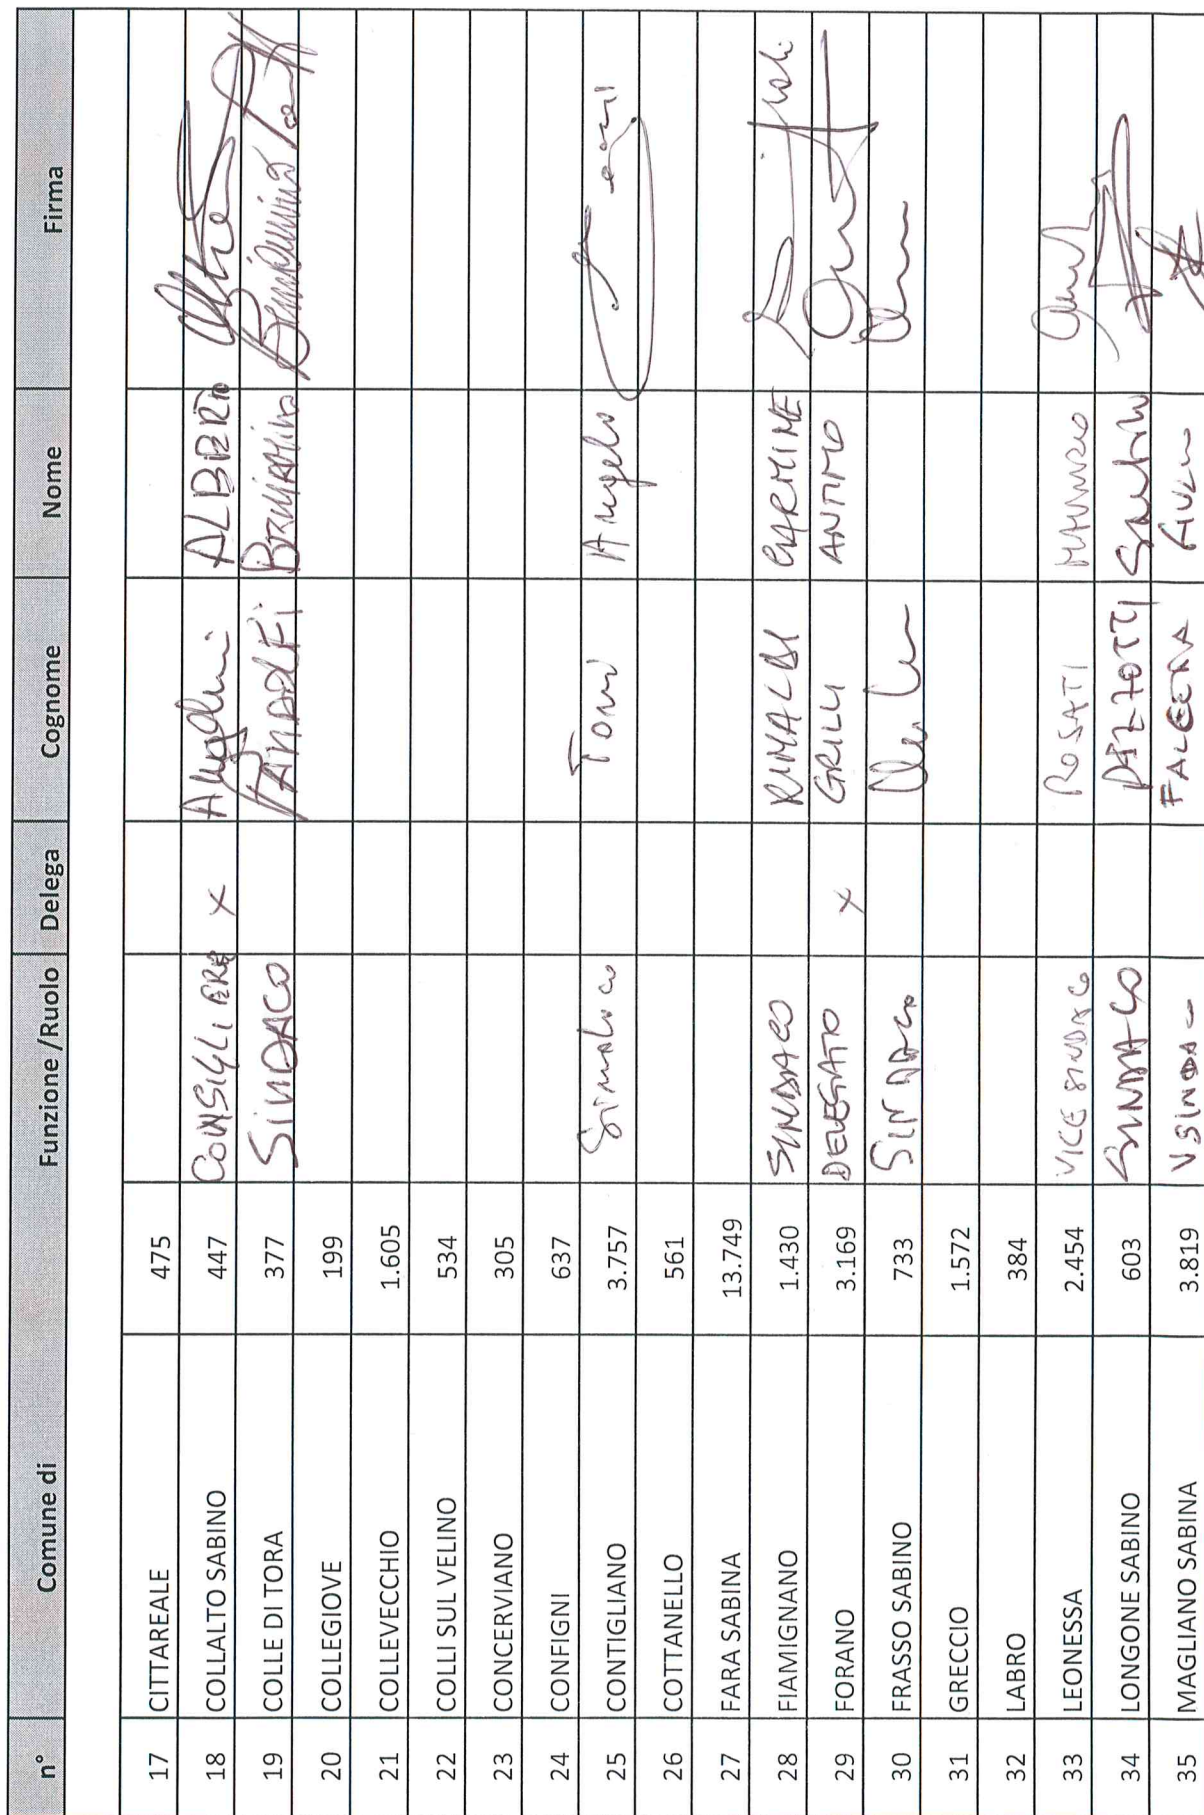 n° Comune di Funzione /Ruolo Delega Cognome Nome Firma
17 CITTAREALE 475
18 COLLALTO SABINO 447 CONSIGLIERE X ALBERTO
19 COLLE DI TORA 377 SINDACO
20 COLLEGIOVE 199
21 COLLEVECCHIO 1.605
22 COLLI SUL VELINO 534
23 CONCERVIANO 305
24 CONFIGNI 637
25 CONTIGLIANO 3.757 Sindaco Toni Angelo
26 COTTANELLO 561
27 FARA SABINA 13.749
28 FIAMIGNANO 1.430 SINDACO RINALDI CARMINE
29 FORANO 3.169 DELEGATO X GRILLI ANTIMO
30 FRASSO SABINO 733 SINDACO
31 GRECCIO 1.572
32 LABRO 384
33 LEONESSA 2.454 VICE SINDACO ROSATI MAURIZIO
34 LONGONE SABINO 603 SINDACO
35 MAGLIANO SABINA 3.819